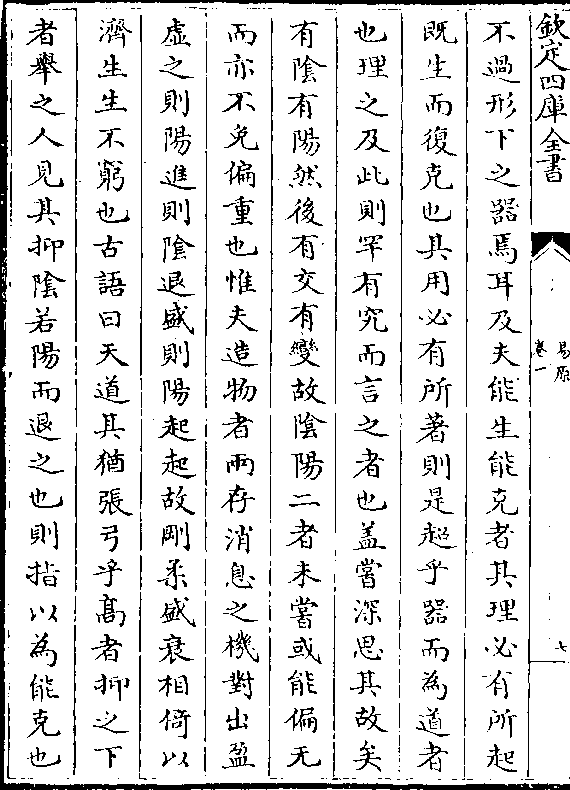 欽定四庫全書
易原
卷一
七
不過形下之器焉耳及夫能生能克者其理必有所起
既生而復克也其用必有所著則是超乎器而為道者
也理之及此則罕有究而言之者也盖嘗深思其故矣
有陰有陽然後有交有變故陰陽二者未嘗或能偏无
而亦不免偏重也惟夫造物者兩存消息之機對出盈
虛之則陽進則陰退盛則陽起起故剛柔盛衰相倚以
濟生生不窮也古語曰天道其猶張弓乎髙者抑之下
者舉之人見其抑陰若陽而退之也則指以為能克也